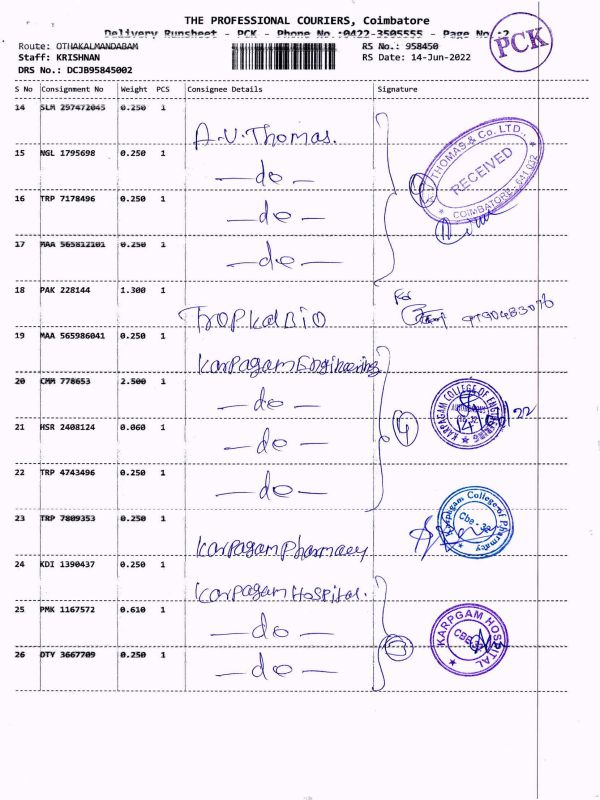 THE PROFESSIONAL COURIERS, Coimbatore
Delivery Runsheet - PCK - Phone No.:0422-3505555 - Page No.:2
PCK
Route: OTHAKALMANDABAM
RS No.: 958450
Staff: KRISHNAN
RS Date: 14-Jun-2022
DRS No.: DCJB95845002
S No Consignment No Weight PCS Consignee Details Signature
14 SLM 297472045 0.250 1 A.V. Thomas.
15 NGL 1795698 0.250 1 —do—
A.V. THOMAS & Co. LTD.,
RECEIVED
COIMBATORE - 641 032
16 TRP 7178496 0.250 1 —do—
17 MAA 565812101 0.250 1 —do—
18 PAK 228144 1.300 1 TropKalBIO
For
9790483076
19 MAA 565986041 0.250 1 Karpagam Engineering
20 CMM 778653 2.500 1 —do—
KARPAGAM COLLEGE OF ENGINEERING
21 HSR 2408124 0.060 1 —do—
4
22 TRP 4743496 0.250 1 —do—
23 TRP 7809353 0.250 1 Karpagam Pharmacy
Karpagam College of Pharmacy
Cbe - 32
24 KDI 1390437 0.250 1 Karpagam Hospital.
25 PMK 1167572 0.610 1 —do—
3
KARPGAM HOSPITAL
26 DTY 3667709 0.250 1 —do—